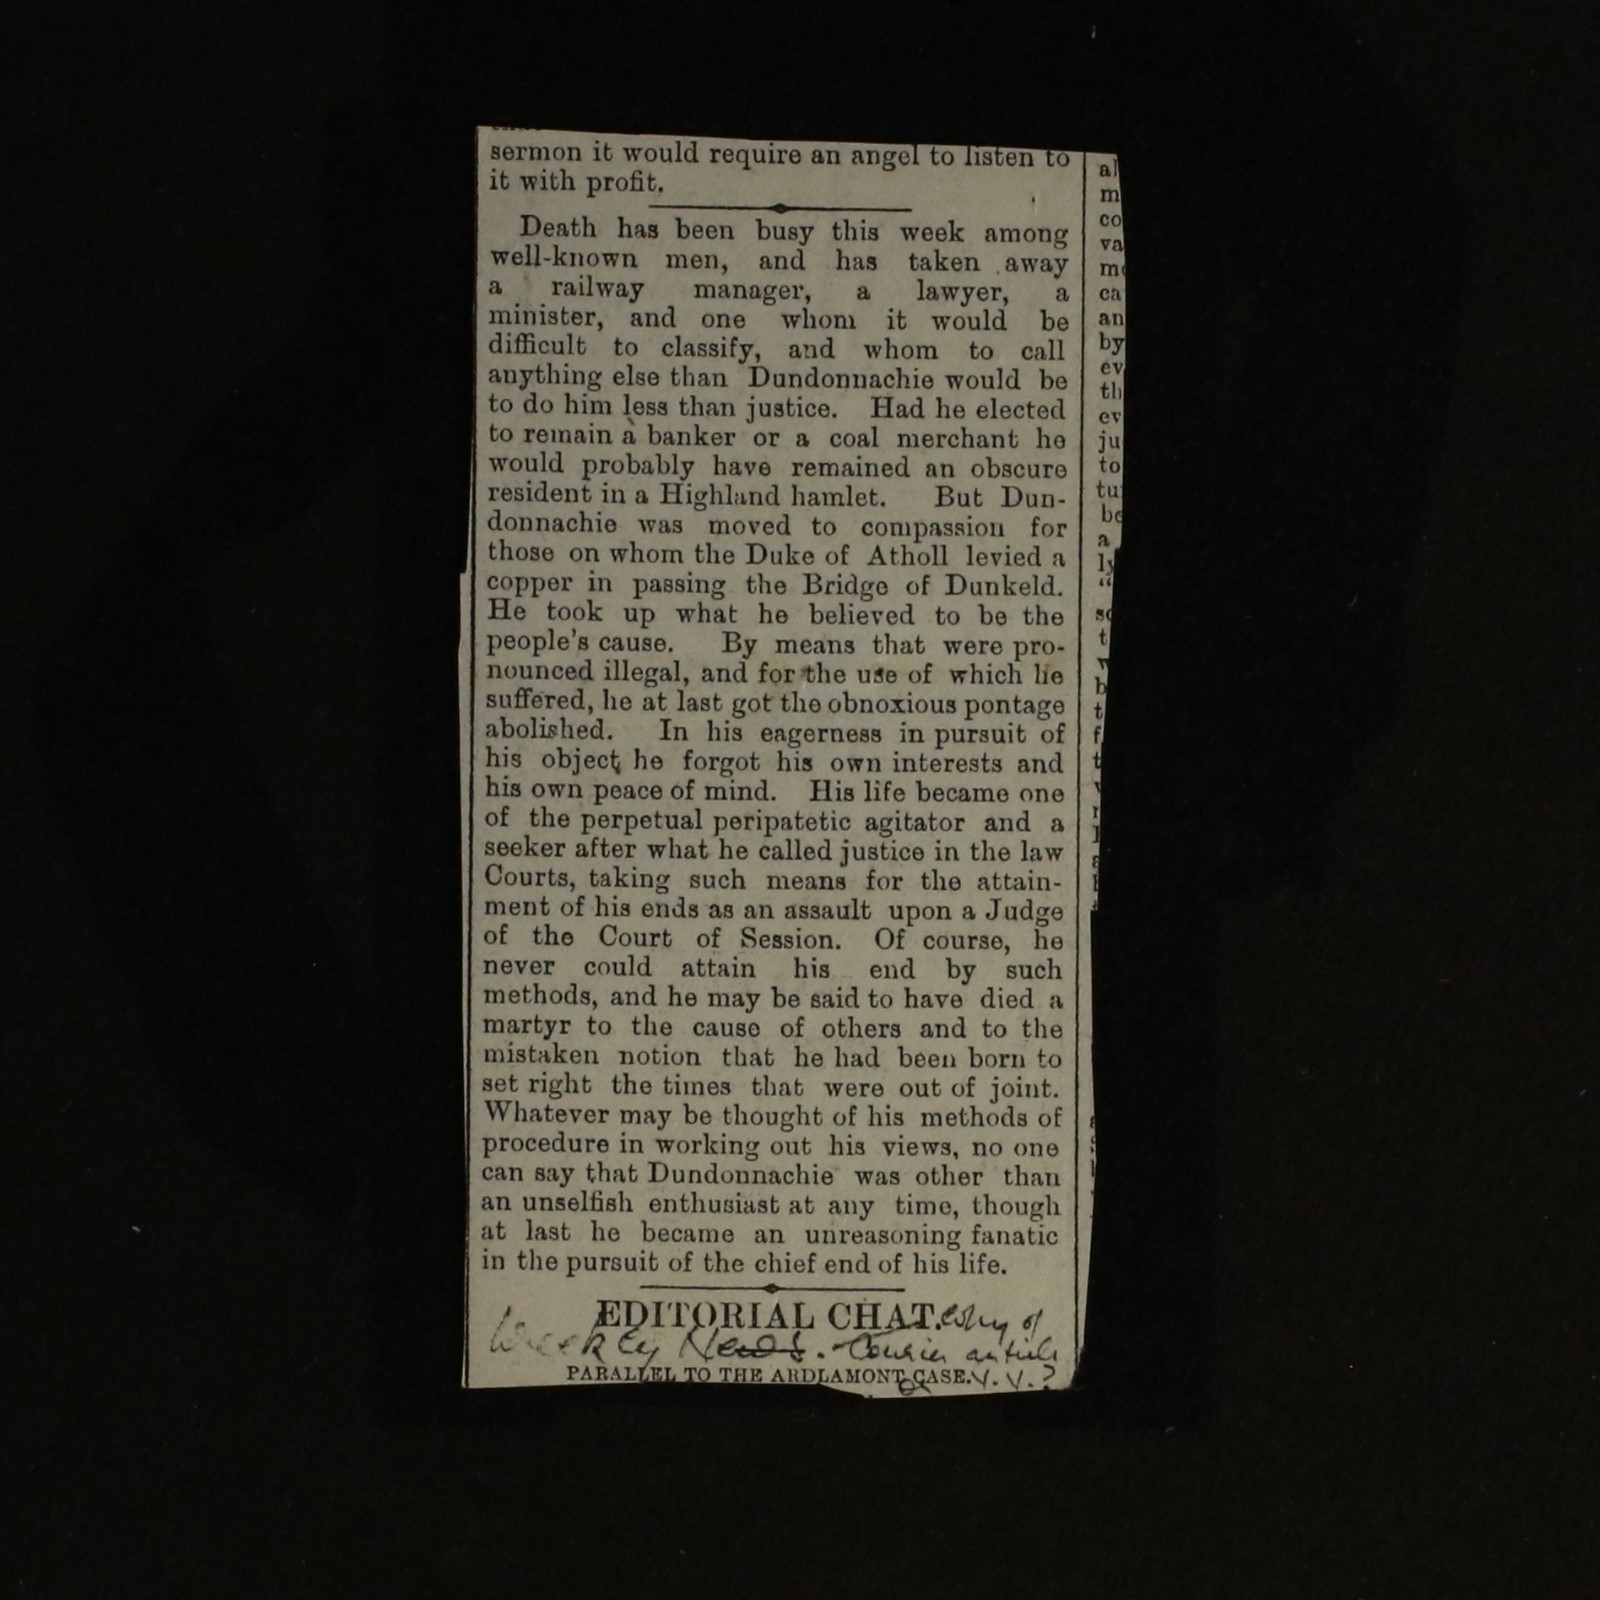 sermon it would require an angel to listen to
it with profit.
Death has been busy this week among
well-known men, and has taken away
a railway manager, a lawyer, a
minister, and one whom it would be
difficult to classify, and whom to call
anything else than Dundonnachie would be
to do him less than justice. Had he elected
to remain a banker or a coal merchant he
would probably have remained an obscure
resident in a Highland hamlet. But Dun-
donnachie was moved to compassion for
those on whom the Duke of Atholl levied a
copper in passing the Bridge of Dunkeld.
He took up what he believed to be the
people's cause. By means that were pro-
nounced illegal, and for the use of which he
suffered, he at last got the obnoxious pontage
abolished. In his eagerness in pursuit of
his object, he forgot his own interests and
his own peace of mind. His life became one
of the perpetual peripatetic agitator and a
seeker after what he called justice in the law
Courts, taking such means for the attain-
ment of his ends as an assault upon a Judge
of the Court of Session. Of course, he
never could attain his end by such
methods, and he may be said to have died a
martyr to the cause of others and to the
mistaken notion that he had been born to
set right the times that were out of joint.
Whatever may be thought of his methods of
procedure in working out his views, no one
can say that Dundonnachie was other than
an unselfish enthusiast at any time, though
at last he became an unreasoning fanatic
in the pursuit of the chief end of his life.
EDITORIAL CHAT. copy of
Weekly News. Courier article
PARALLEL TO THE ARDLAMONT CASE. V. V.?
al
m
co
va
ca
an
by
ev
th
ev
ju
to
tu
be
a
ly